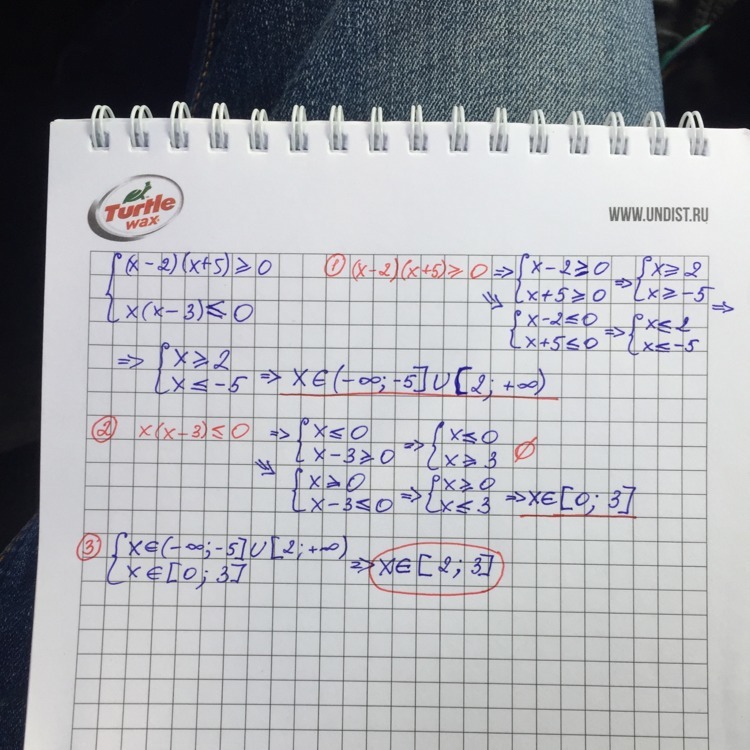 Turtle
wax
WWW.UNDIST.RU
{(x-2)(x+5)≥0
x(x-3)≤0
① (x-2)(x+5)≥0 => {x-2≥0 => {x≥2
x+5≥0 x≥-5 =>
=> {x-2≤0 => {x≤2
x+5≤0 x≤-5
=> {x≥2
x≤-5 => x∈(-∞;-5]∪[2;+∞)
② x(x-3)≤0 => {x≤0 => {x≤0
x-3≥0 x≥3 ∅
=> {x≥0 => {x≥0
x-3≤0 x≤3 => x∈[0;3]
③ {x∈(-∞;-5]∪[2;+∞)
x∈[0;3] => x∈[2;3]